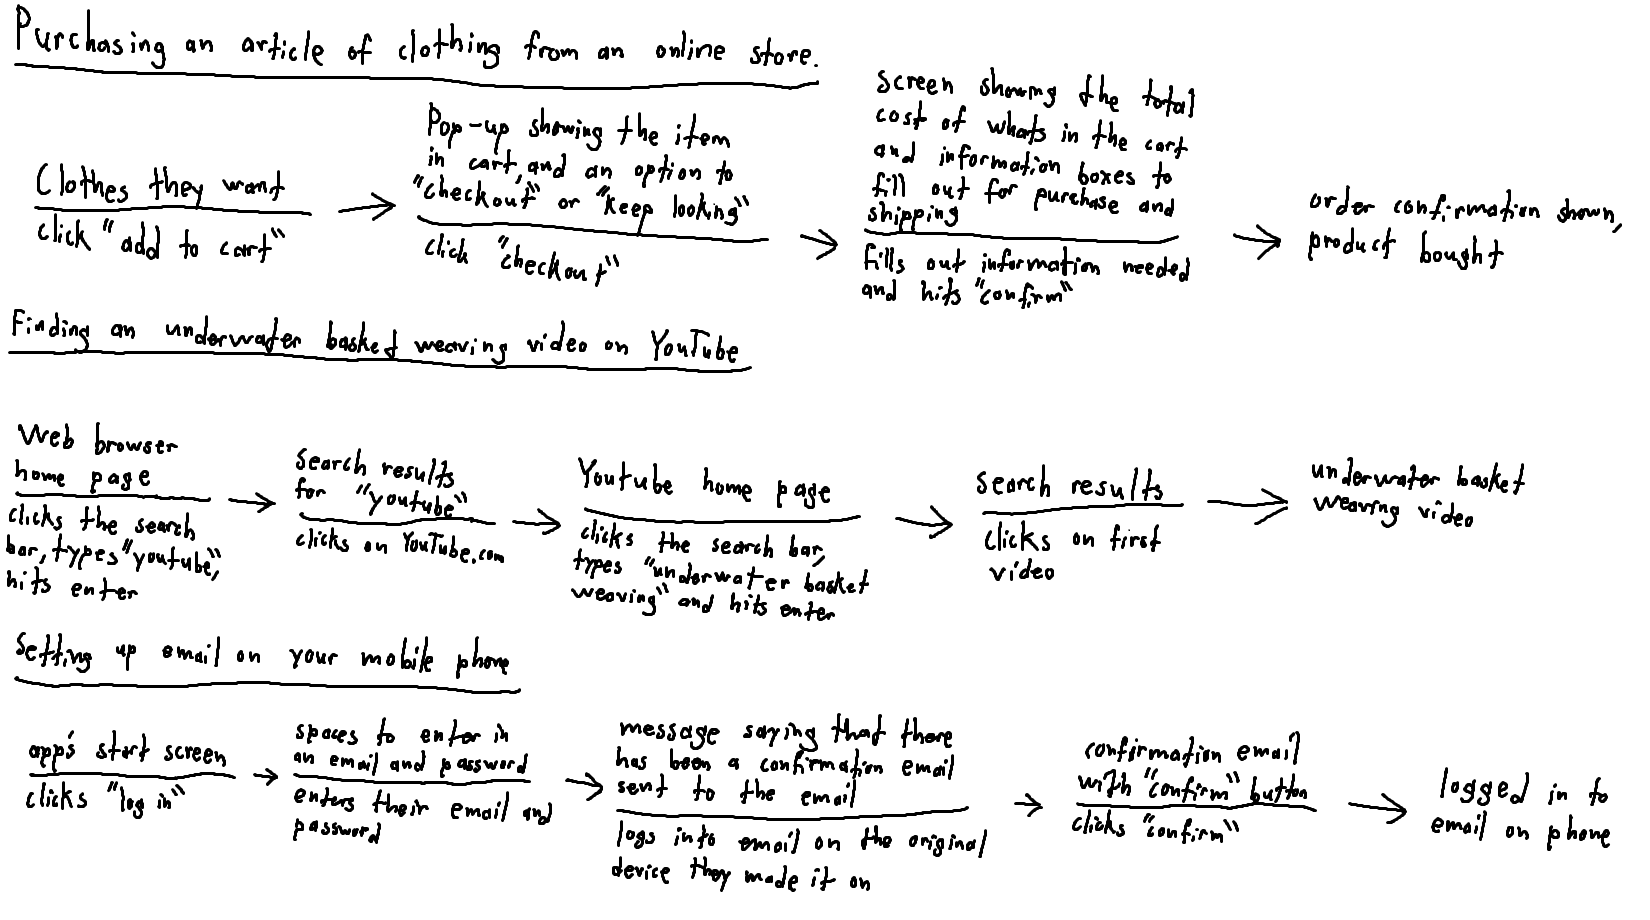 Purchasing an article of clothing from an online store.
Clothes they want
click "add to cart"
Pop-up showing the item
in cart, and an option to
"checkout" or "keep looking"
click "checkout"
screen showing the total
cost of whats in the cart
and information boxes to
fill out for purchase and
shipping
fills out information needed
and hits "confirm"
order confirmation shown,
product bought
Finding an underwater basket weaving video on YouTube
Web browser
home page
clicks the search
bar, types "youtube",
hits enter
Search results
for "youtube"
clicks on YouTube.com
Youtube home page
clicks the search bar,
types "underwater basket
weaving" and hits enter
Search results
clicks on first
video
underwater basket
weaving video
Setting up email on your mobile phone
app's start screen
clicks "log in"
spaces to enter in
an email and password
enters their email and
password
message saying that there
has been a confirmation email
sent to the email
logs into email on the original
device they made it on
confirmation email
with "confirm" button
clicks "confirm"
logged in to
email on phone